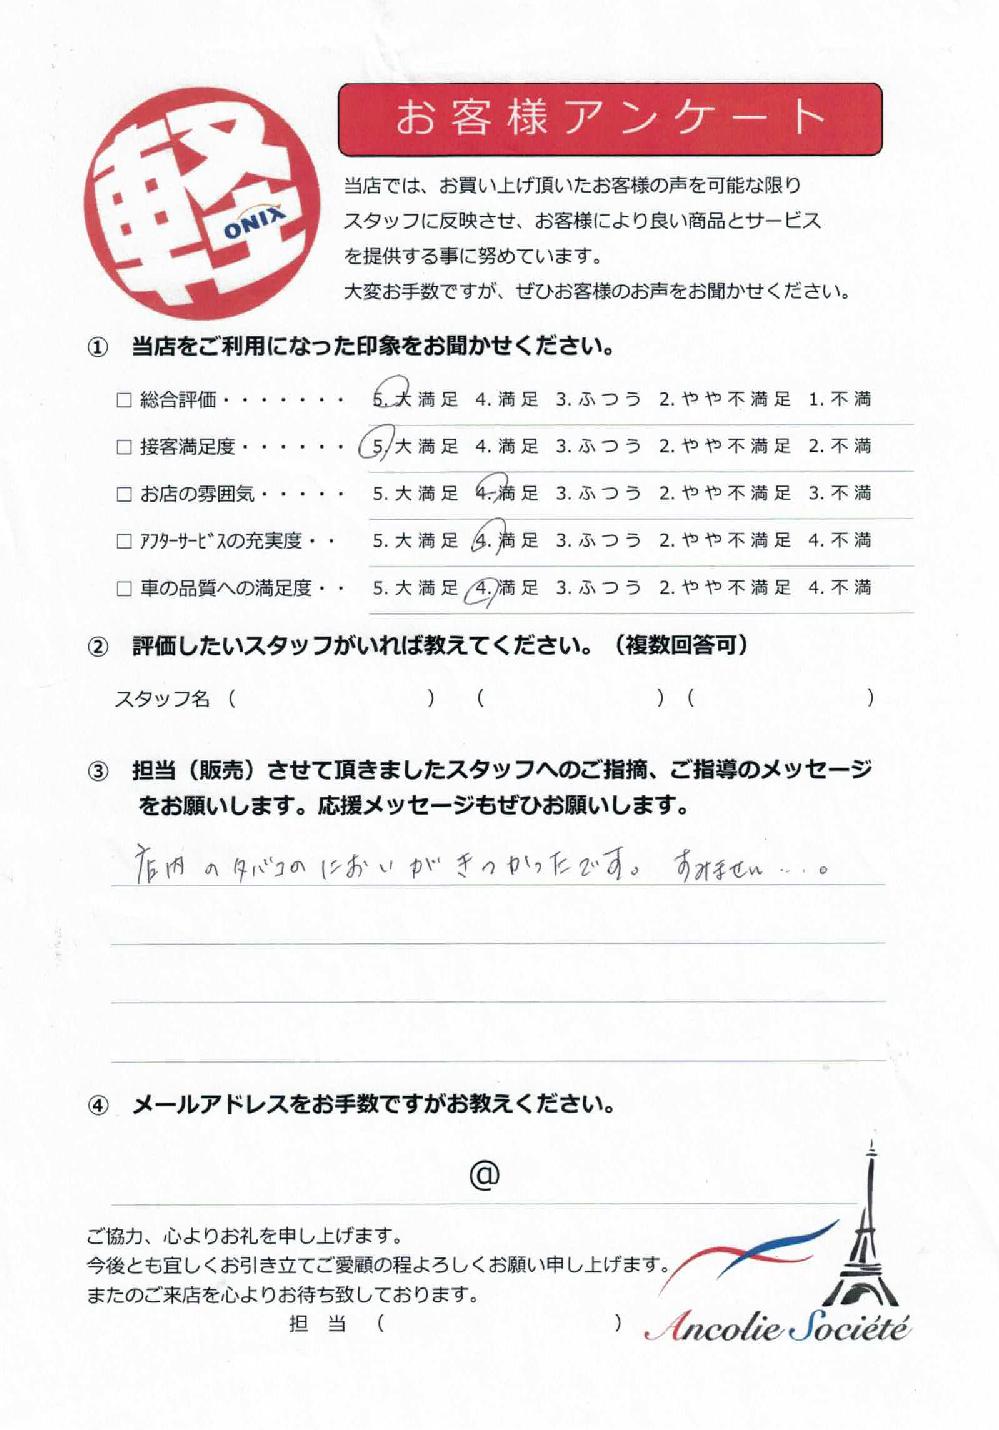 軽
ONIX
お客様アンケート
当店では、お買い上げ頂いたお客様の声を可能な限り
スタッフに反映させ、お客様により良い商品とサービス
を提供する事に努めています。
大変お手数ですが、ぜひお客様のお声をお聞かせください。
① 当店をご利用になった印象をお聞かせください。
□ 総合評価・・・・・・・ 5.大満足 4.満足 3.ふつう 2.やや不満足 1.不満
□ 接客満足度・・・・・・ 5.大満足 4.満足 3.ふつう 2.やや不満足 2.不満
□ お店の雰囲気・・・・・ 5.大満足 4.満足 3.ふつう 2.やや不満足 3.不満
□ ｱﾌﾀｰｻｰﾋﾞｽの充実度・・ 5.大満足 4.満足 3.ふつう 2.やや不満足 4.不満
□ 車の品質への満足度・・ 5.大満足 4.満足 3.ふつう 2.やや不満足 4.不満
② 評価したいスタッフがいれば教えてください。（複数回答可）
スタッフ名（　　　　　）（　　　　　）（　　　　　）
③ 担当（販売）させて頂きましたスタッフへのご指摘、ご指導のメッセージ
をお願いします。応援メッセージもぜひお願いします。
店内のタバコのにおいがきつかったです。すみません…。
④ メールアドレスをお手数ですがお教えください。
@
ご協力、心よりお礼を申し上げます。
今後とも宜しくお引き立てご愛顧の程よろしくお願い申し上げます。
またのご来店を心よりお待ち致しております。
担　当　（　　　　　　　）
Ancolie Société